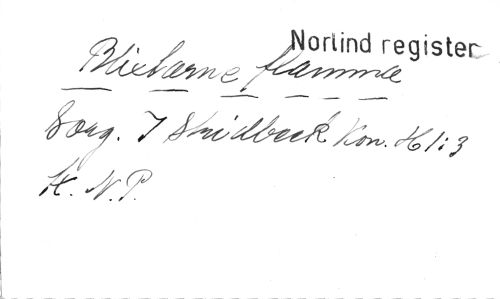 Norlind register
Blixtarne flamma
Sorg. I Skidbeck Kon. H 1:3
K. N.P.